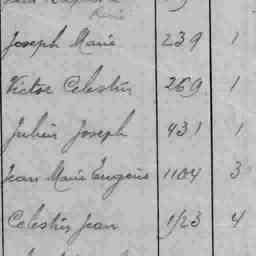 René
Joseph Marie 239 1
Victor Celestin 269 1
Julien Joseph 431 1
Jean Marie Eugène 1104 3
Celestin Jean 1/23 4